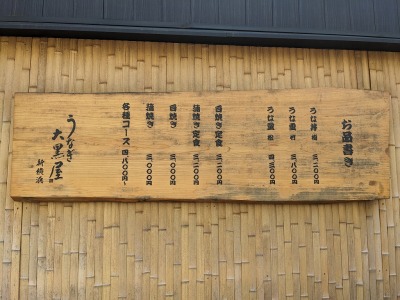 お品書き
うな丼 梅 三、二〇〇円
うな重 竹 三、八〇〇円
うな重 松 四、三〇〇円
白焼き定食 三、二〇〇円
蒲焼き定食 三、二〇〇円
白焼き 三、〇〇〇円
蒲焼き 三、〇〇〇円
各種コース 四、八〇〇円〜
うなぎ
大黒屋
新横浜